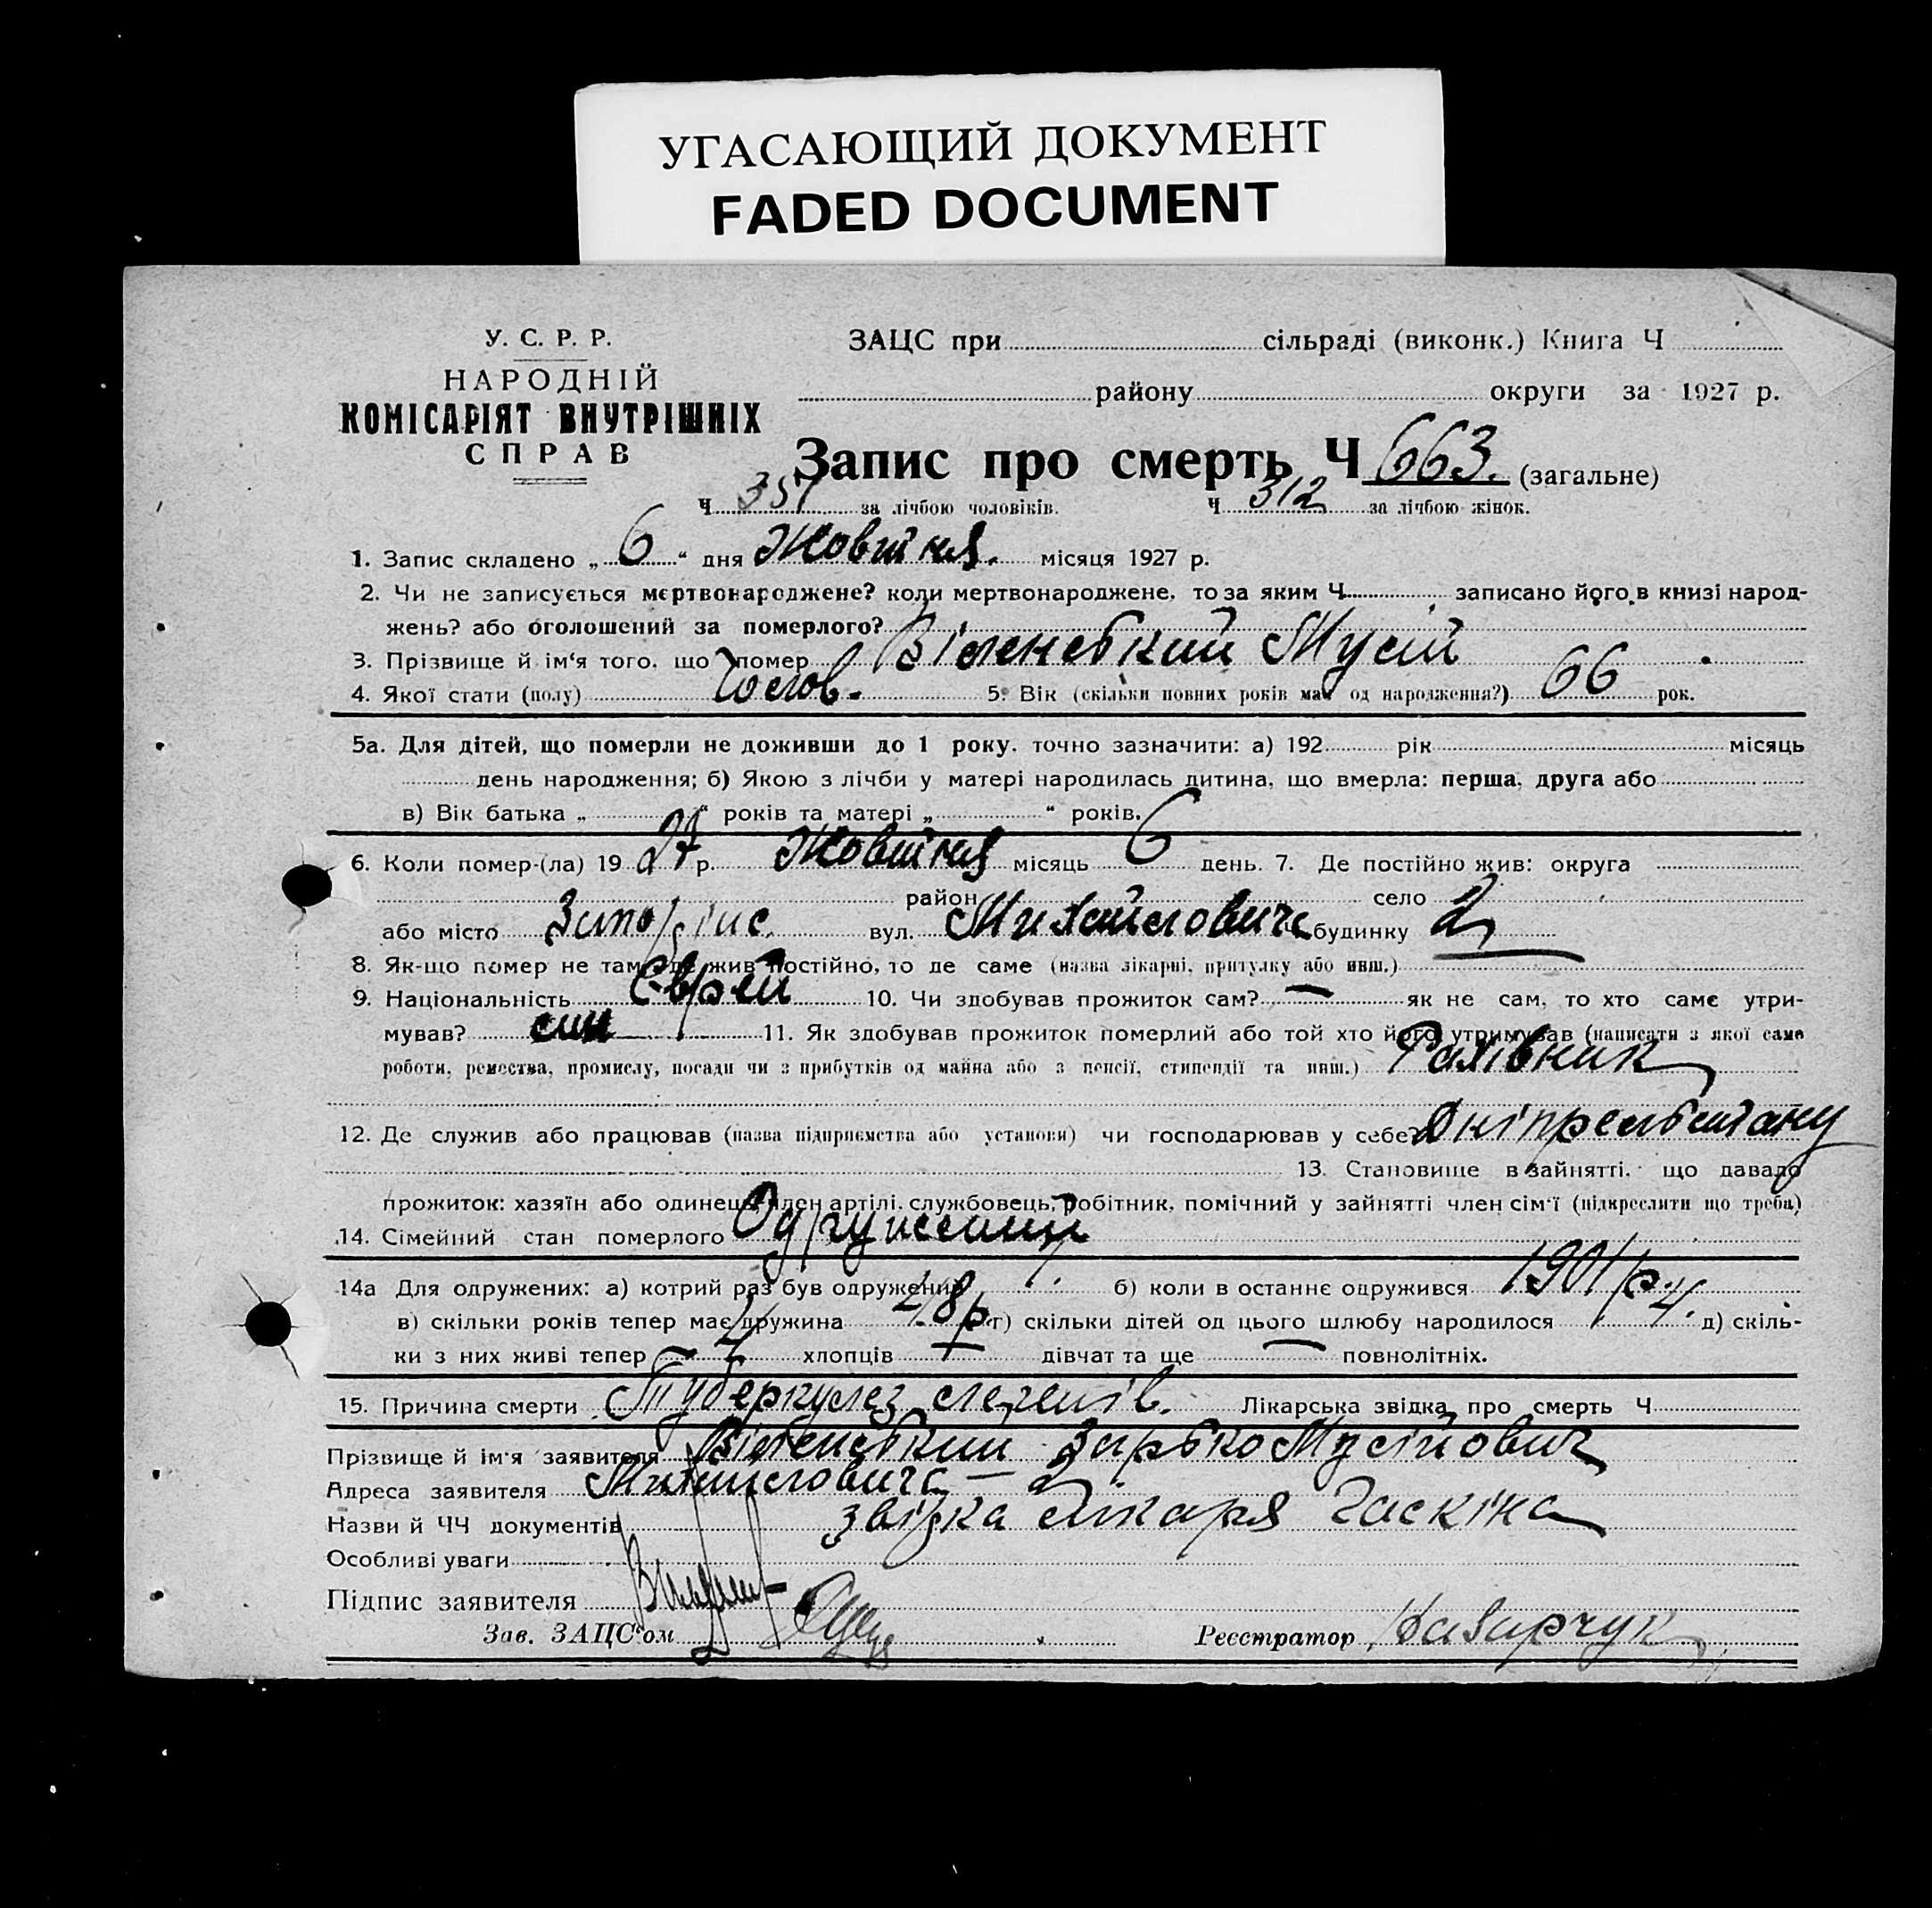 УГАСАЮЩИЙ ДОКУМЕНТ
FADED DOCUMENT
У. С. Р. Р.
НАРОДНІЙ
КОМІСАРІЯТ ВНУТРІШНІХ
СПРАВ
ЗАЦС при сільраді (виконк.) Книга Ч
району округи за 1927 р.
Запис про смерть Ч 663. (загальне)
Ч 351 за лічбою чоловіків. Ч 312 за лічбою жінок.
1. Запис складено „ 6 “ дня Жовтня. місяця 1927 р.
2. Чи не записується мертвонароджене? коли мертвонароджене, то за яким Ч записано його в книзі народ-
жень? або оголошений за померлого?
3. Прізвище й ім‘я того, що помер Віленський Мусій
4. Якої стати (полу) Чолов. 5. Вік (скільки повних років мав од народження?) 66 рок.
5а. Для дітей, що померли не доживши до 1 року, точно зазначити: а) 192 рік місяць
день народження; б) Якою з лічби у матері народилась дитина, що вмерла: перша, друга або
в) Вік батька „ “ років та матері „ “ років.
6. Коли помер-(ла) 19 27 р. Жовтня місяць 6 день. 7. Де постійно жив: округа
район село
або місто вул. Михайловича будинку 2
8. Як-що помер не там, де жив постійно, то де саме (назва лікарні, притулку або инш.)
9. Національність Єврей 10. Чи здобував прожиток сам? — як не сам, то хто саме утри-
мував? син 11. Як здобував прожиток померлий або той хто його утримував (написати з якої саме
роботи, ремества, промислу, посади чи з прибутків од майна або з пенсії, стипендії та инш.) Рахівник
12. Де служив або працював (назва підприємства або установи) чи господарював у себе? Дніпрельбстану
13. Становище в зайнятті, що давало
прожиток: хазяїн або одинець, член артілі, службовець, робітник, помічний у зайнятті член сім‘ї (підкреслити що треба)
14. Сімейний стан померлого Одружений
14а Для одружених: а) котрий раз був одружений 1. б) коли в останнє одружився 1901 р.
в) скільки років тепер має дружина 48 р. г) скільки дітей од цього шлюбу народилося 4. д) скіль-
ки з них живі тепер хлопців дівчат та ще — повнолітніх.
15. Причина смерти Туберкулез легенів. Лікарська звідка про смерть Ч
Прізвище й ім‘я заявителя Віленський Мусійович
Адреса заявителя Михайловича — 2
Назви й ЧЧ документів звідка лікаря Гаскіна
Особливі уваги
Підпис заявителя
Зав. ЗАЦС‘ом Реєстратор